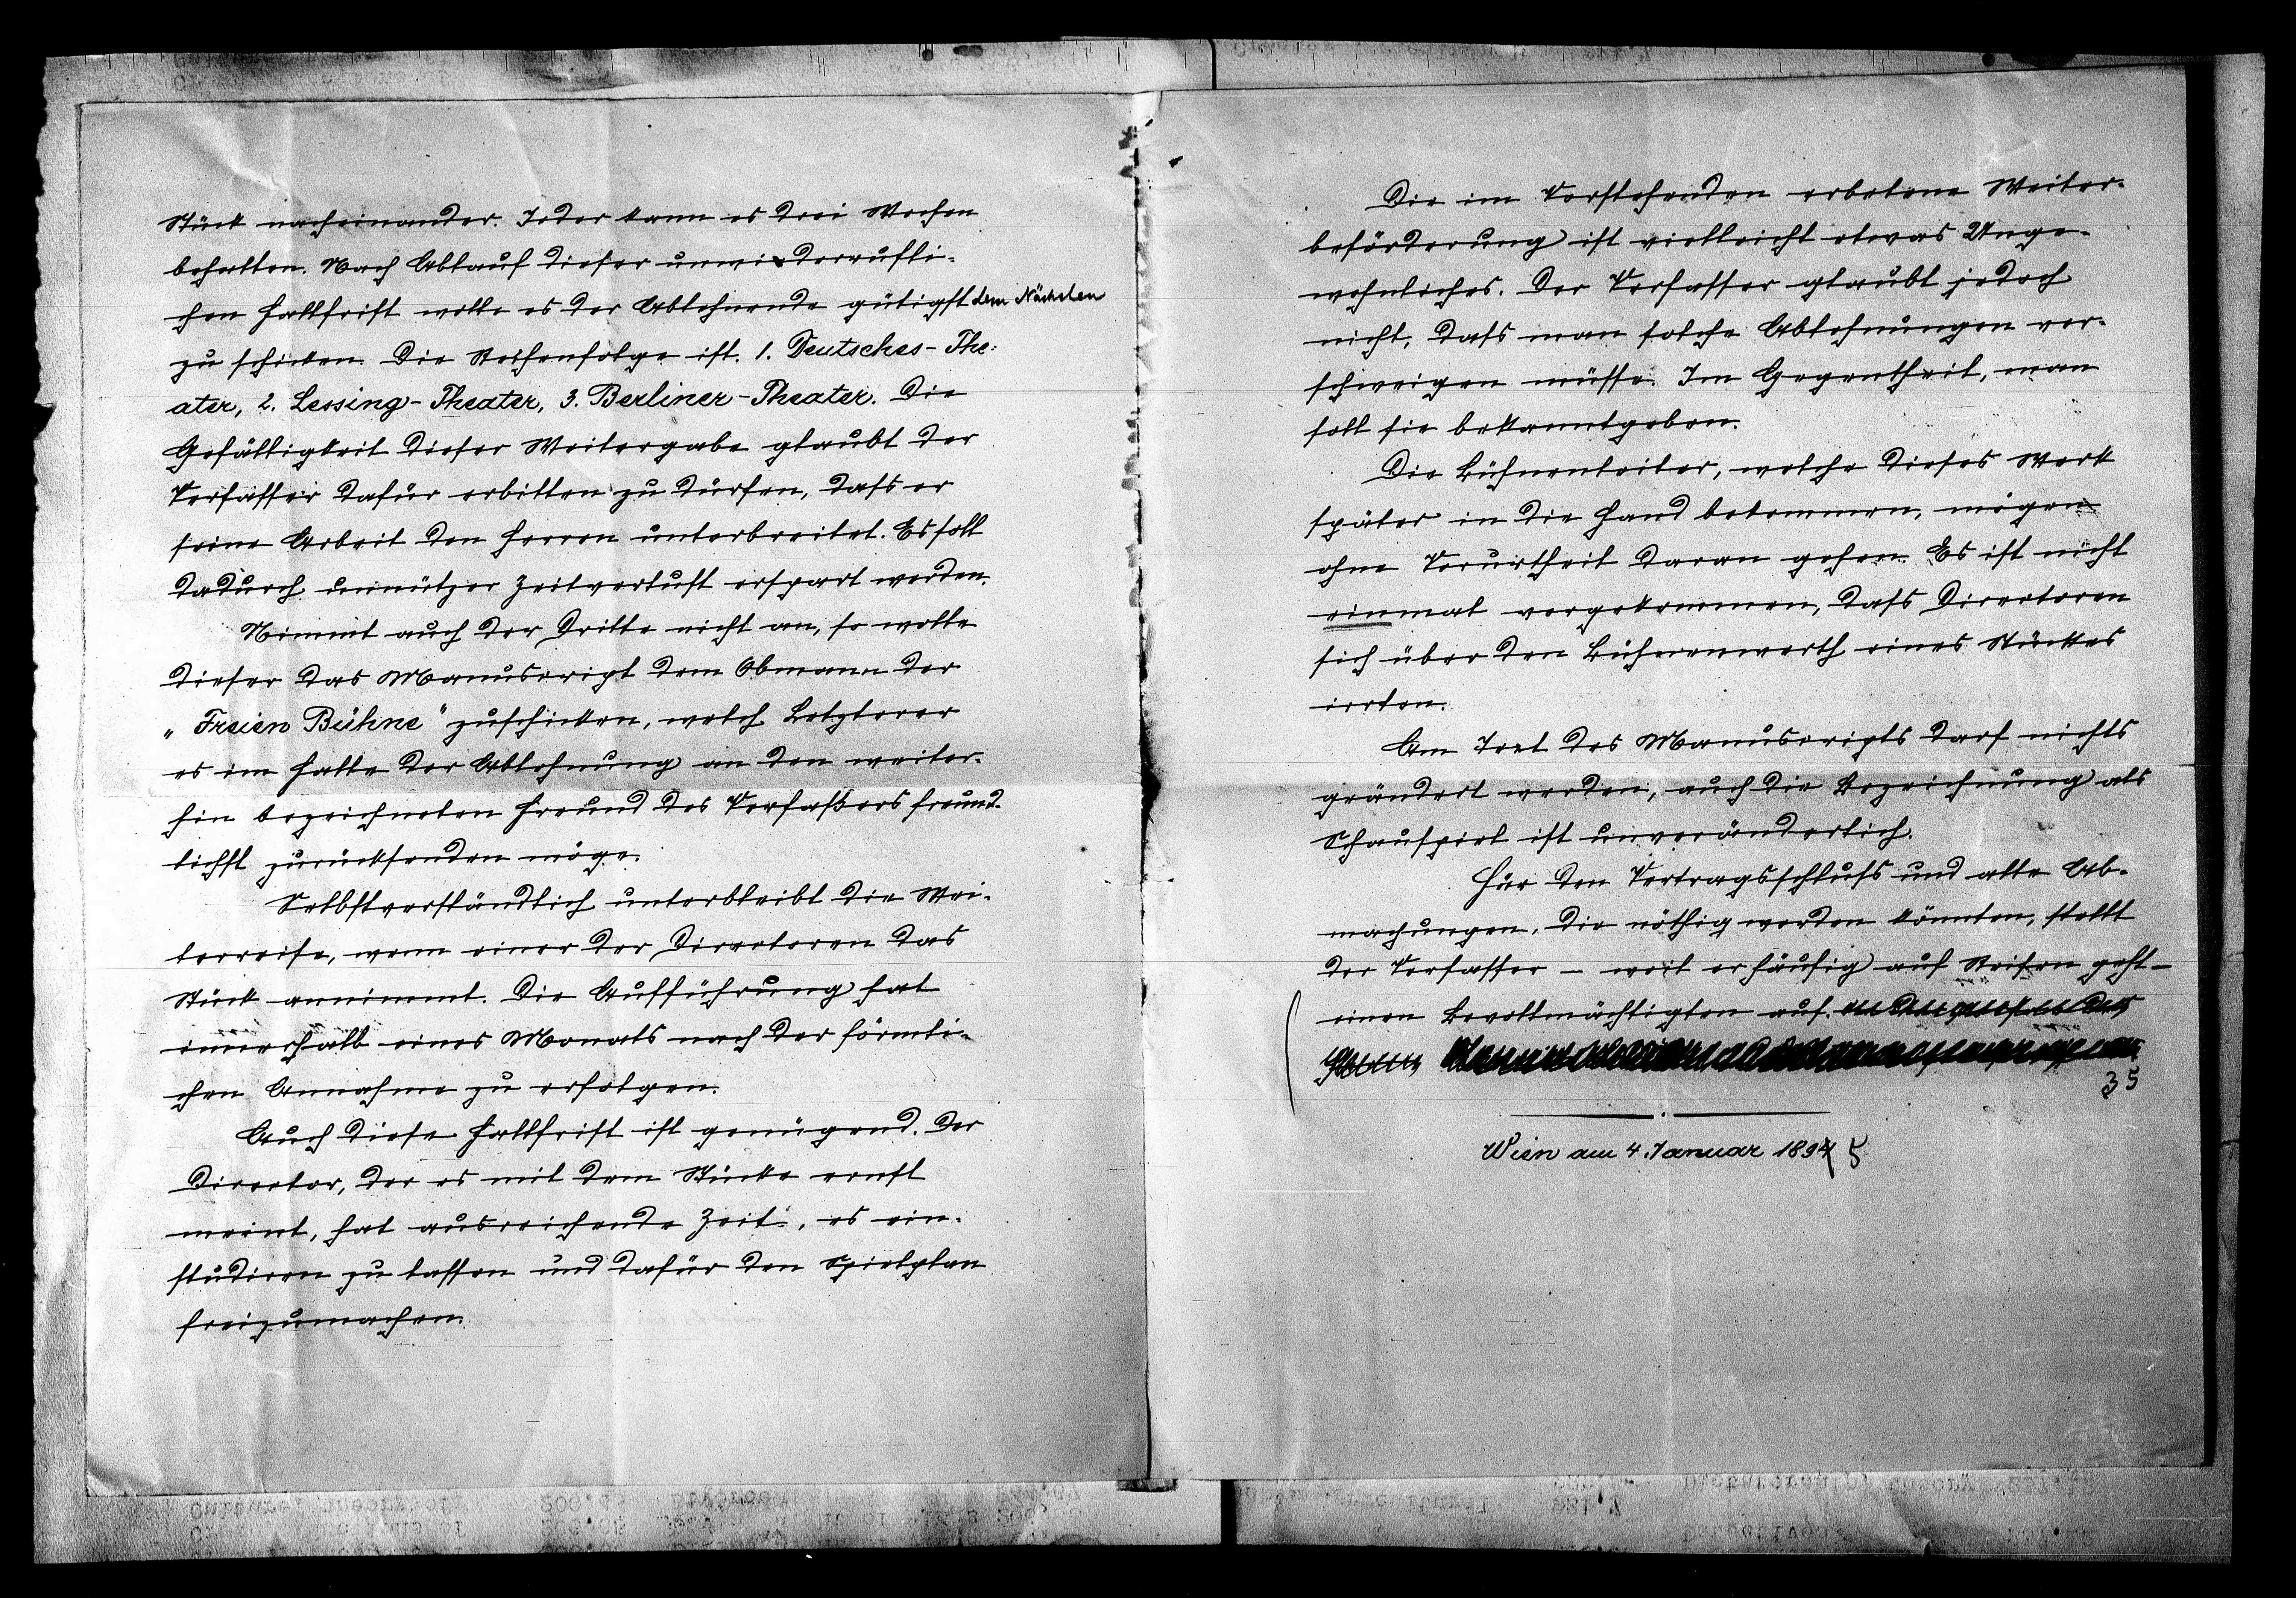 Stück nacheinander. Jeder kann es drei Wochen
behalten. Nach Ablauf dieser unwiederrufli-
chen Fallfrist wolle es der Ablehnende gütigst dem Nächsten
zu schicken. Die Reihenfolge ist. 1. Deutsches-The-
ater, 2. Lessing-Theater, 3. Berliner-Theater. Die
Gefälligkeit dieser Weitergabe glaubt der
Verfasser dafür erbitten zu dürfen, dass er
seine Arbeit den Herren unterbreitet. Es soll
dadurch unnützer Zeitverlust erspart werden.
Nimmt auch der Dritte nicht an, so wolle
dieser das Manuscript dem Obmann der
„Freien Bühne" zuschicken, welch Letzterer
es im Falle der Ablehnung an den weiter-
hin bezeichneten Freund des Verfaßers freund-
lichst zurücksenden möge.
Selbstverständlich unterbleibt die Wei-
terreise, wenn einer der Directoren das
Stück annimmt. Die Aufführung hat
innerhalb eines Monats nach der förmli-
chen Annahme zu erfolgen.
Auch diese Fallfrist ist genügend. Der
Director, der es mit dem Stücke ernst
meint, hat ausreichende Zeit, es ein-
studiren zu lassen und dafür den Spielplan
freizumachen.
Die im Vorstehenden erbetene Weiter-
beförderung ist vielleicht etwas Unge-
wohnliches. Der Verfasser glaubt jedoch
nicht, dass man solche Ablehnungen ver-
schweigen müsse. Im Gegentheil, man
soll sie bekanntgeben.
Die Bühnenleiter, welche dieses Werk
später in die Hand bekommen, mögen
ohne Vorurtheil daran gehen. Es ist nicht
einmal vorgekommen, dass Directoren
sich über den Bühnenwerth eines Stückes
irrten.
Am Text des Manuscripts darf nichts
geändert werden, auch die Bezeichnung als
Schauspiel ist unveränderlich.
Für den Vertragsschluss und alle Ab-
machungen, die nöthig werden könnten, stellt
der Verfasser – weil er häufig auf Reisen geht –
einen Bevollmächtigten auf.
35
Wien am 4. Januar 1894 5